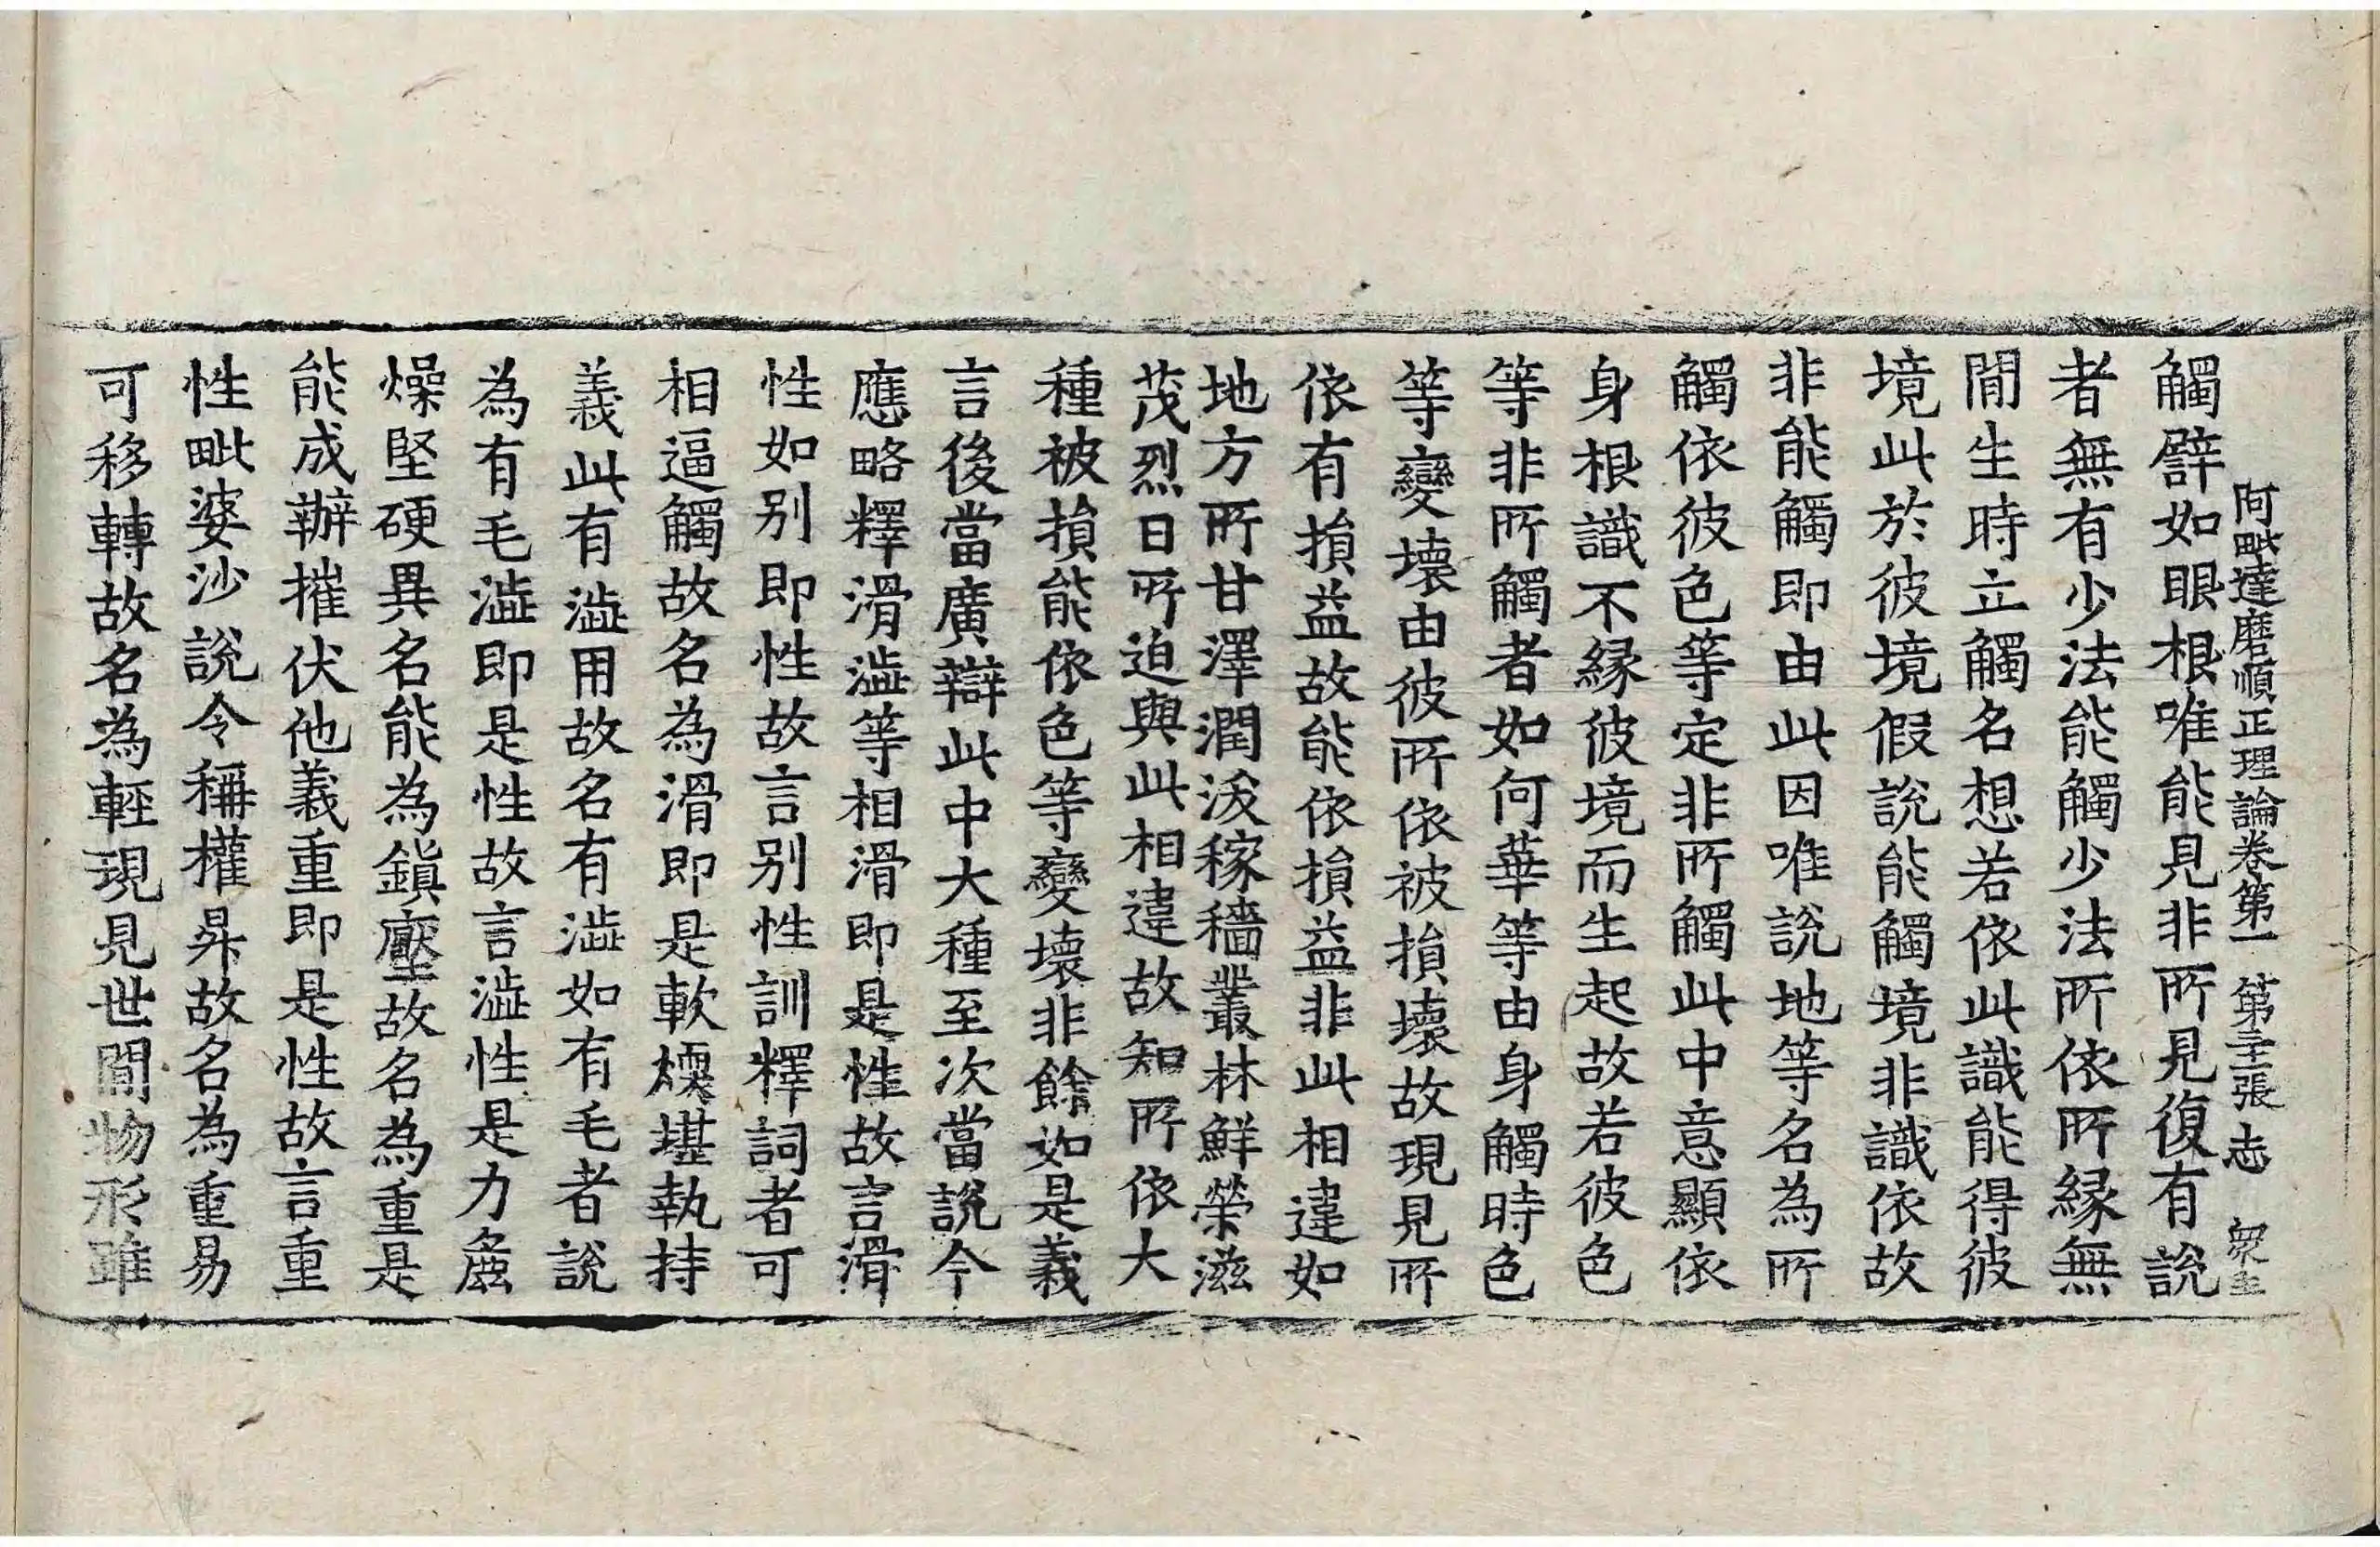 阿毗達磨順正理論卷第一 第二十一張 志
觸譬如眼根唯能見非所見復有說
者無有少法能觸少法所依所緣無
閒生時立觸名想若依此識能得彼
境此於彼境假說能觸境非識依故
非能觸即由此因唯說地等名為所
觸依彼色等定非所觸此中意顯依
身根識不緣彼境而生起故若彼色
等非所觸者如何華等由身觸時色
等變壞由彼所依被損壞故現見所
依有損益故能依損益非此相違如
地方所甘澤潤沃稼穡叢林鮮榮滋
茂烈日所迫與此相違故知所依大
種被損能依色等變壞非餘如是義
言後當廣辯此中大種至次當說今
應略釋滑澁等相滑即是性故言滑
性如别即性故言别性訓釋詞者可
相逼觸故名為滑即是軟㮕堪執持
義此有澁用故名有澁如有毛者說
為有毛澁即是性故言澁性是力麁
燥堅硬異名能為鎭壓故名為重是
能成辦摧伏他義重即是性故言重
性毗婆沙說令稱權昇故名為重易
可移轉故名為輕現見世閒物形雖